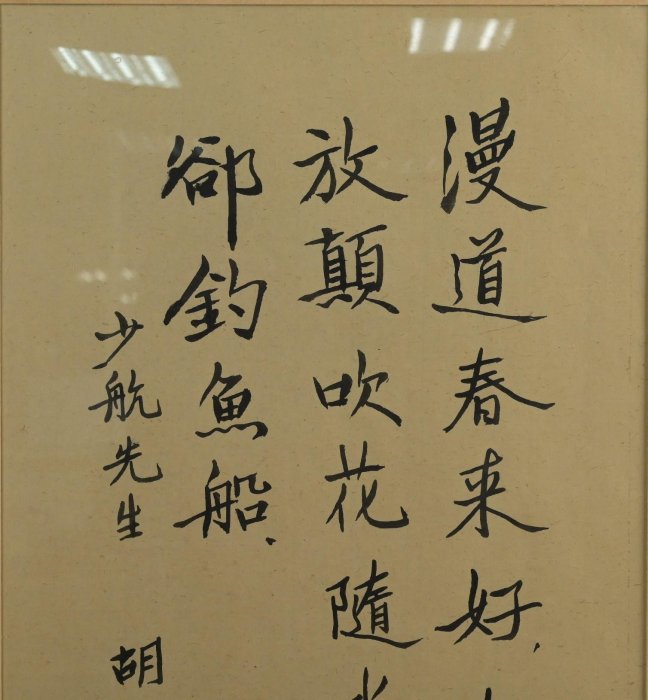 漫道春来好,
放顛吹花隨
郤釣魚船.
少航先生
胡